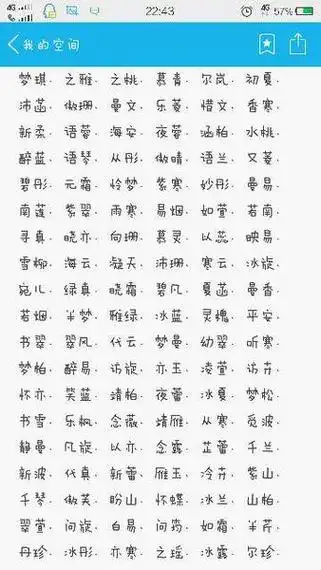 4G 22:43 4G 57%
我的空间
梦琪. 之雅. 之桃. 慕青. 尔岚. 初夏.
沛菡. 傲珊. 曼文. 乐菱. 惜文. 香寒.
新柔. 语蓉. 海安. 夜蓉. 涵柏. 水桃.
醉蓝. 语琴. 从彤. 傲晴. 语兰. 又菱.
碧彤. 元霜. 怜梦. 紫寒. 妙彤. 曼易.
南莲. 紫翠. 雨寒. 易烟. 如萱. 若南.
寻真. 晓亦. 向珊. 慕灵. 以蕊. 映易.
雪柳. 海云. 凝天. 沛珊. 寒云. 冰旋.
宛儿. 绿真. 晓霜. 碧凡. 夏菡. 曼香.
若烟. 半梦. 雅绿. 冰蓝. 灵槐. 平安.
书翠. 翠风. 代云. 梦曼. 幼翠. 听寒.
梦柏. 醉易. 访旋. 亦玉. 凌萱. 访卉.
怀亦. 笑蓝. 靖柏. 夜蕾. 冰夏. 梦松.
书雪. 乐枫. 念薇. 靖雁. 从寒. 觅波.
静曼. 凡旋. 以亦. 念露. 芷蕾. 千兰.
新波. 代真. 新蕾. 雁玉. 冷卉. 紫山.
千琴. 傲芙. 盼山. 怀蝶. 冰兰. 山柏.
翠萱. 问旋. 白易. 问筠. 如霜. 半芹.
丹珍. 冰彤. 亦寒. 之瑶. 冰露. 尔珍.